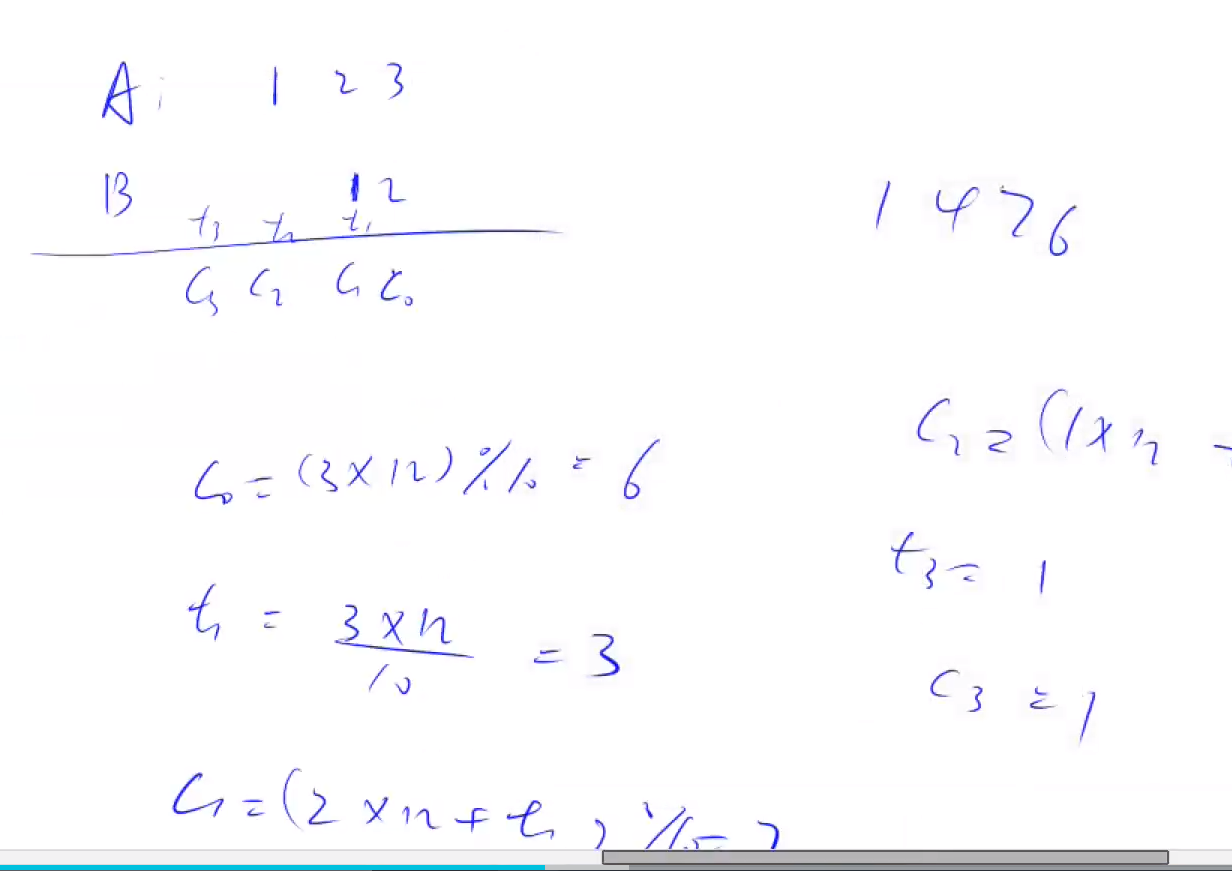 A: 1 2 3
B 12
t₃ t₂ t₁
C₃ C₂ C₁ C₀
1 4 7 6
C₀ = (3 × 12) % 10 = 6
t₁ = 3 × 12 / 10 = 3
C₁ = (2 × 12 + t₁) % 10 = 7
C₂ = (1 × 12 +
t₃ = 1
C₃ = 1